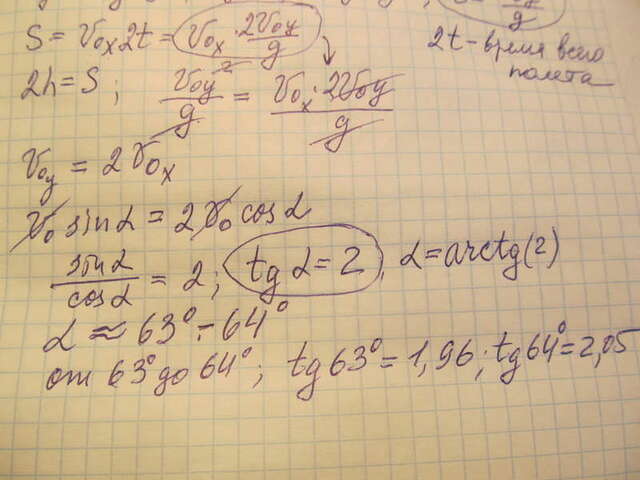 g
S = V₀ₓ2t = V₀ₓ · 2V₀y/g
2t - время всего
полета
2h = S ; V₀y²/g = V₀ₓ · 2V₀y/g
V₀y = 2V₀ₓ
V₀ sin α = 2 V₀ cos α
sin α/cos α = 2 ; tg α = 2, α = arctg(2)
α ≈ 63° ÷ 64°
от 63° до 64° ; tg 63° = 1,96 ; tg 64° = 2,05